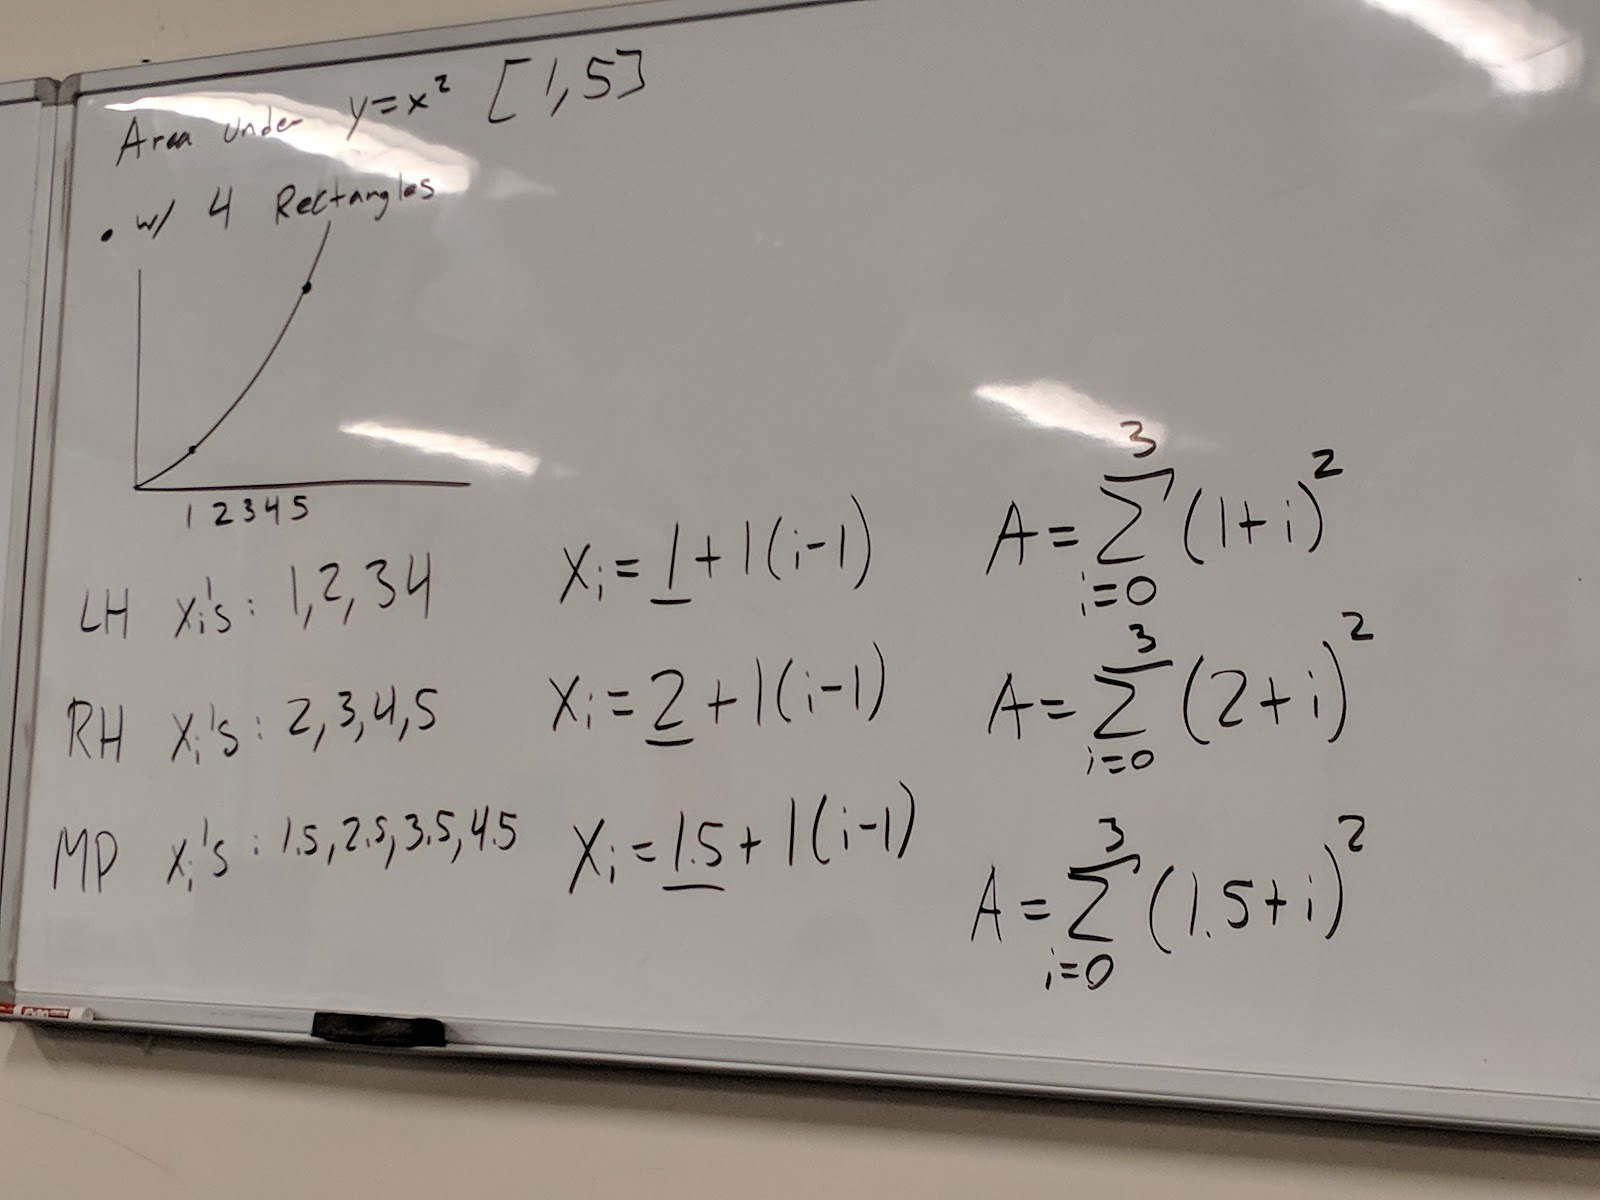 Area Under y=x² [1,5]
• w/ 4 Rectangles
1 2 3 4 5
LH xᵢ's: 1,2,3 4 Xᵢ = 1 + 1(i-1) A = 3 Σ i=0 (1+i)²
RH xᵢ's: 2,3,4,5 Xᵢ = 2 + 1(i-1) A = 3 Σ i=0 (2+i)²
MP xᵢ's: 1.5,2.5,3.5,4.5 Xᵢ = 1.5 + 1(i-1) A = 3 Σ i=0 (1.5+i)²